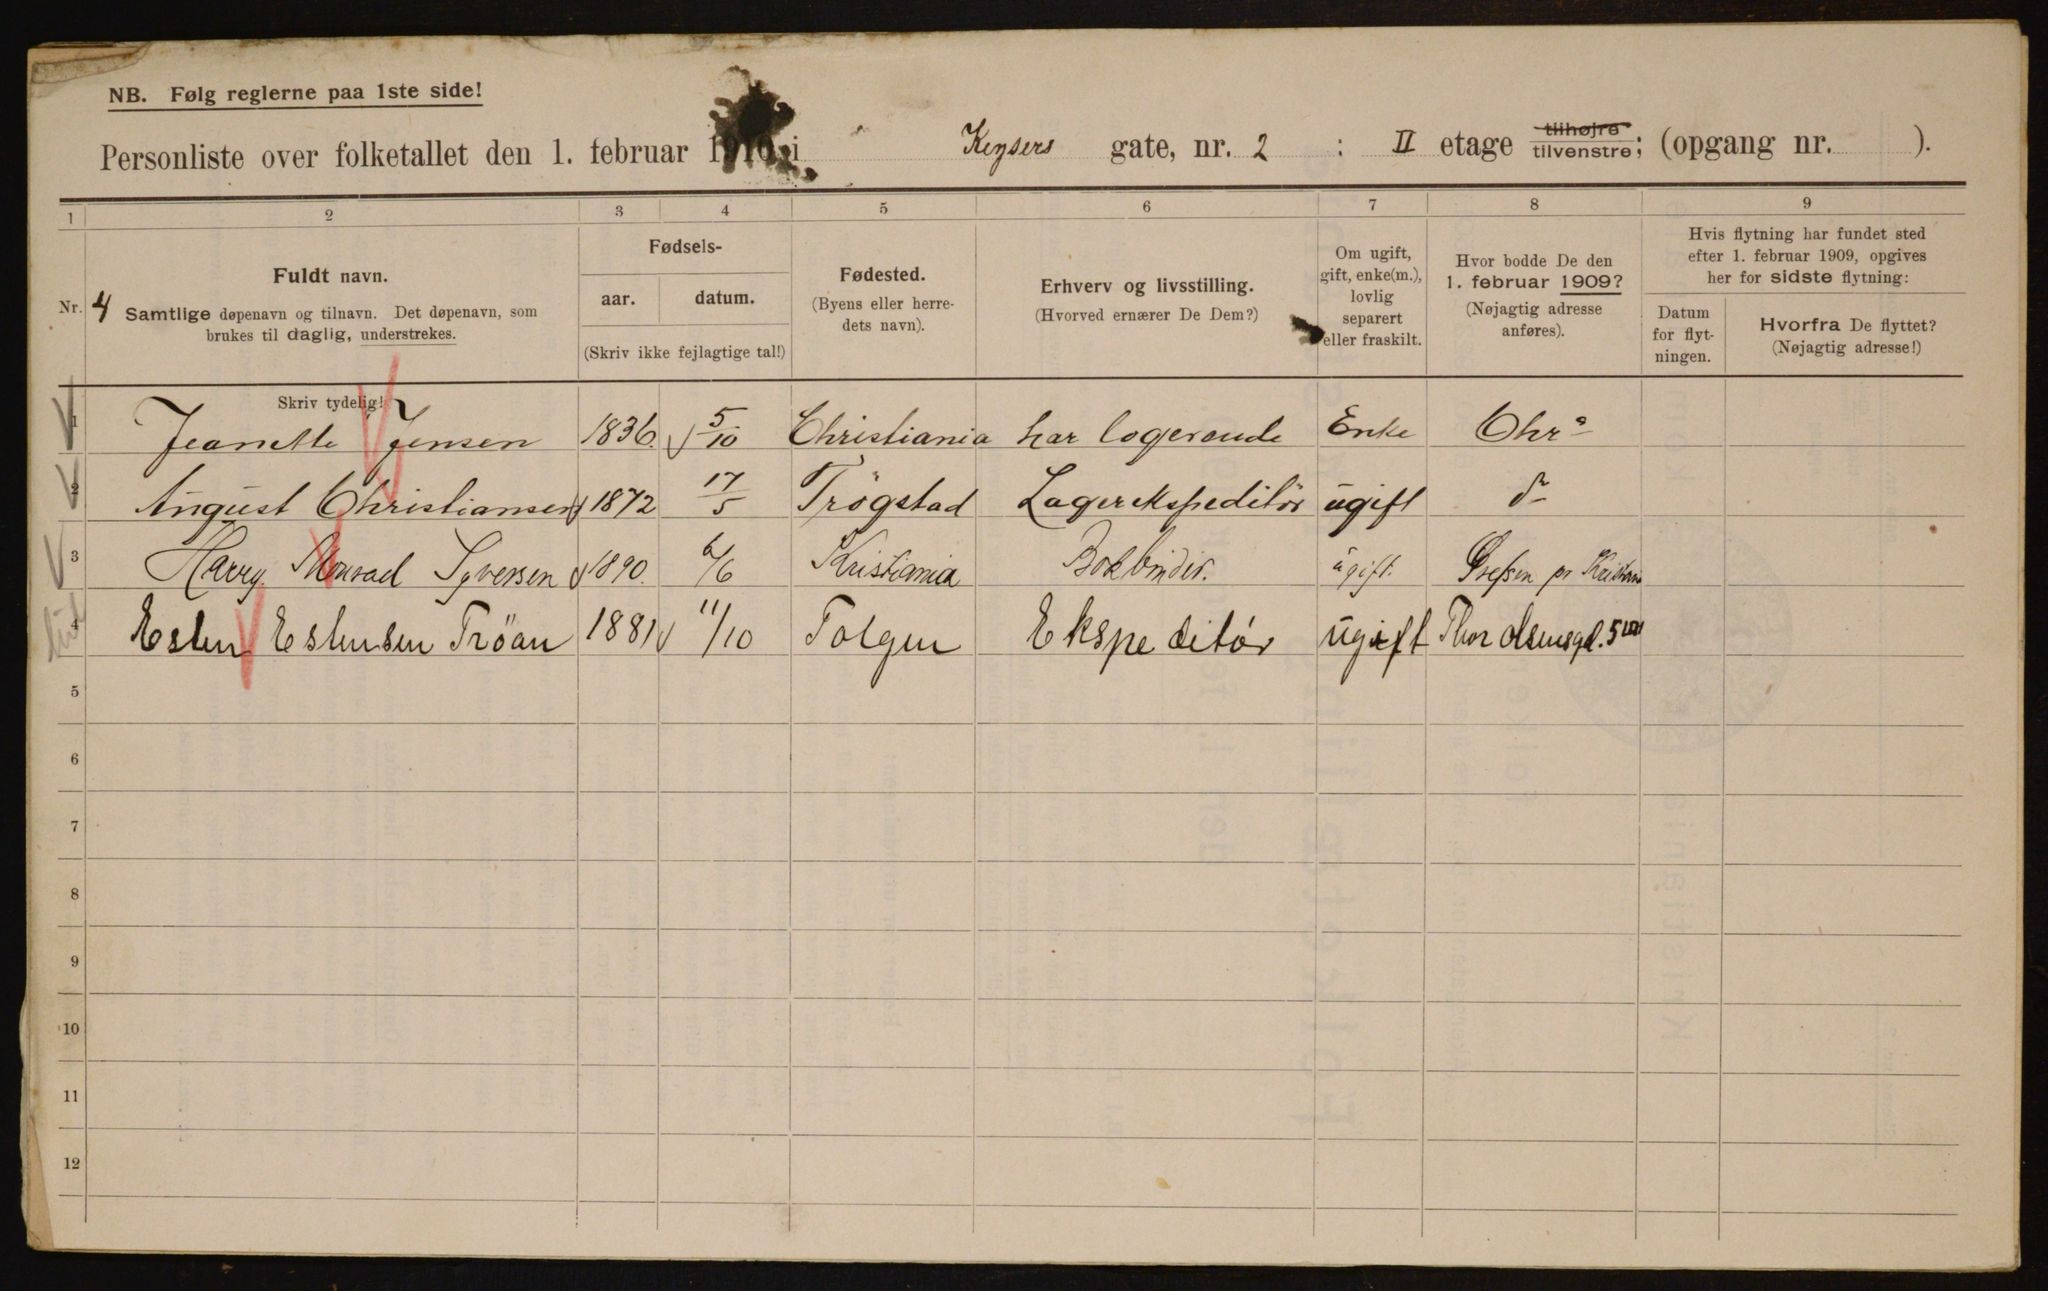 NB. Følg reglerne paa 1ste side!
Personliste over folketallet den 1. februar 1910 i Keysers gate, nr. 2 : II etage tilhøjre tilvenstre; (opgang nr. ).
1 2 3 4 5 6 7 8 9
Nr. 4
Fuldt navn.
Samtlige døpenavn og tilnavn. Det døpenavn, som
brukes til daglig, understrekes.
Skriv tydelig!
Fødsels-
aar. datum.
(Skriv ikke fejlagtige tal!)
Fødested.
(Byens eller herre-
dets navn).
Erhverv og livsstilling.
(Hvorved ernærer De Dem?)
Om ugift,
gift, enke(m.),
lovlig
separert
eller fraskilt.
Hvor bodde De den
1. februar 1909?
(Nøjagtig adresse
anføres).
Hvis flytning har fundet sted
efter 1. februar 1909, opgives
her for sidste flytning:
Datum
for flyt-
ningen.
Hvorfra De flyttet?
(Nøjagtig adresse!)
1 Jeanette Jensen 1836 5/10 Christiania har logerende Enke Chr a
2 August Christiansen 1872 17/5 Trögstad Lagerekspeditör ugift do
3 Harry Monrad Syversen 1890. 6/6 Kristiania Bokbinder. ugift. Grefsen pr Kristiania
4 Esten Estensen Tröan 1881 11/10 Tolgen Ekspeditör ugift Thor Olsensgd. 5
5
6
7
8
9
10
11
12